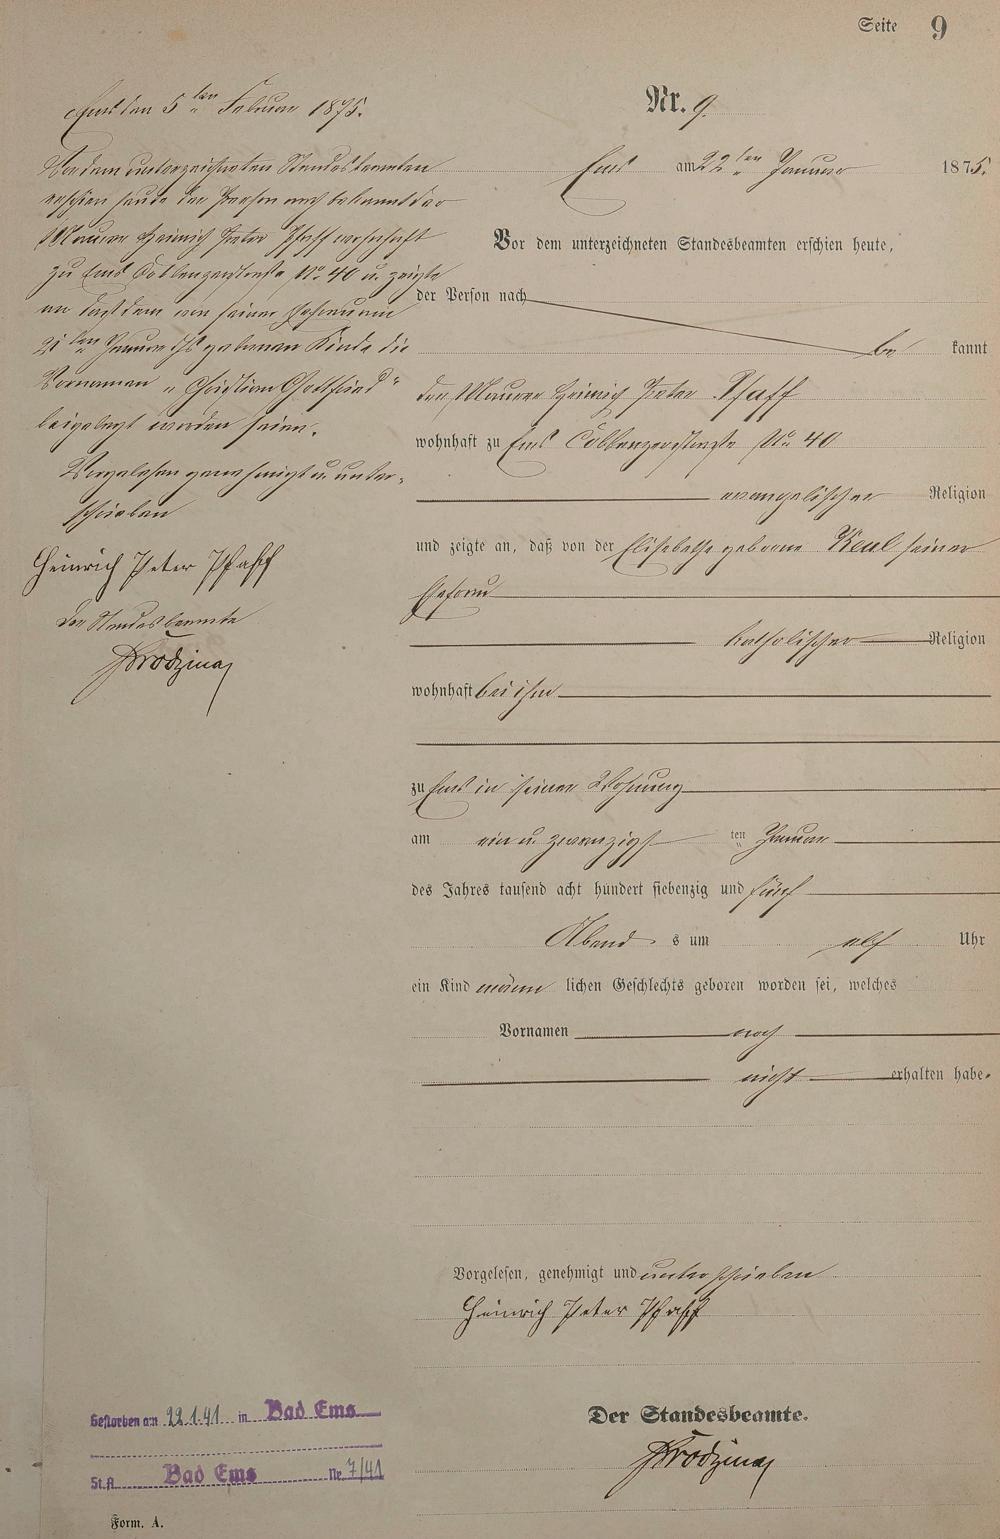 Seite 9
Ems den 5ten Februar 1875.
Vor dem unterzeichneten Standesbeamten
erschien heute der Person nach bekannt der
Maurer Heinrich Peter Pfaff wohnhaft
zu Ems Coblenzerstraße No. 40 u. zeigte
an daß dem von seiner Ehefrau am
21ten Januar c. geborenen Kinde die
Vornamen „Christian Gottfried"
beigelegt worden seien.
Vorgelesen genehmigt u. unter-
schrieben
Heinrich Peter Pfaff
Der Standesbeamte
Nr. 9.
Ems am 22ten Januar 1875.
Vor dem unterzeichneten Standesbeamten erschien heute,
der Person nach
be kannt
der Maurer Heinrich Peter Pfaff
wohnhaft zu Ems Coblenzerstraße No 40
evangelischer Religion
und zeigte an, daß von der Elisabethe geborne Keul seiner
Ehefrau
katholischer Religion
wohnhaft bei ihm
zu Ems in seiner Wohnung
am ein u. zwanzigsten Januar
des Jahres tausend acht hundert siebenzig und fünf
Abend s um elf Uhr
ein Kind männ lichen Geschlechts geboren worden sei, welches
Vornamen noch
nicht erhalten habe.
Vorgelesen, genehmigt und unterschrieben
Heinrich Peter Pfaff
Der Standesbeamte.
Gestorben am 22.1.41 in Bad Ems
St.A. Bad Ems Nr. 7/41
Form. A.